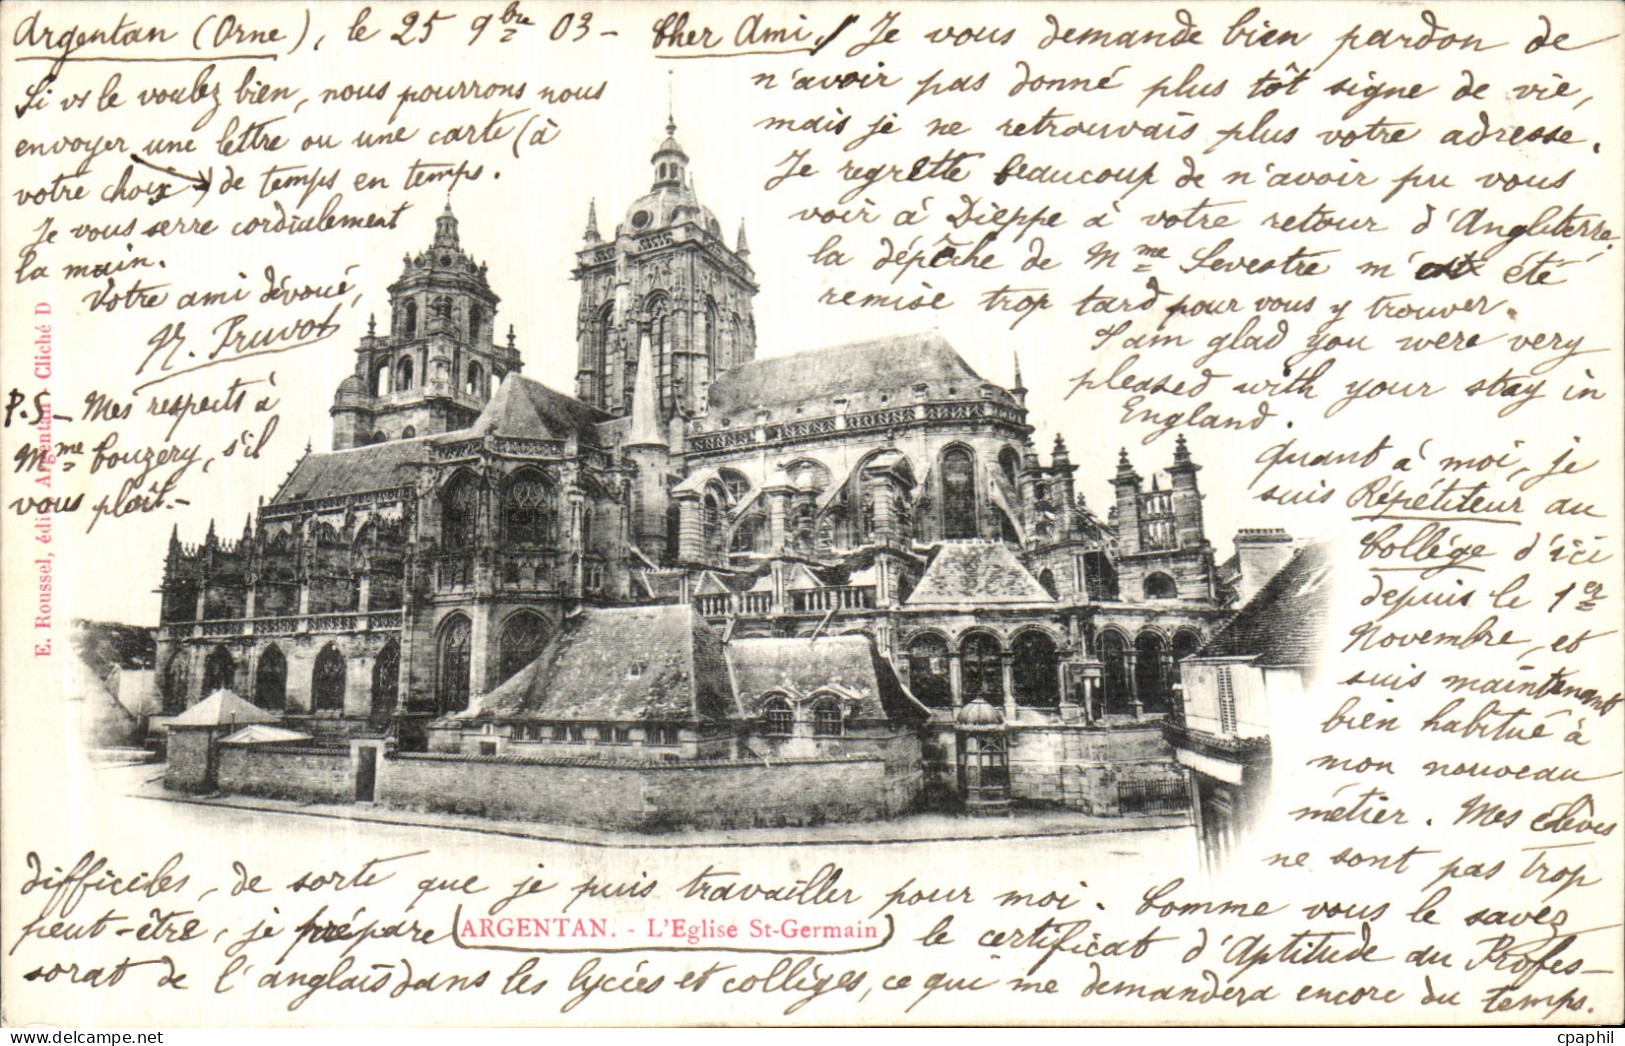 Argentan (Orne), le 25 9bre 03 -
Cher Ami, Je vous demande bien pardon de
n'avoir pas donné plus tôt signe de vie,
mais je ne retrouvais plus votre adresse.
Je regrette beaucoup de n'avoir pu vous
voir à Dieppe à votre retour d'Angleterre,
la dépêche de Mme Sevestre m'a été
remise trop tard pour vous y trouver.
I am glad you were very
pleased with your stay in
England.
Quant à moi, je
suis Répétiteur au
Collège d'ici
depuis le 1er
Novembre, et
suis maintenant
bien habitué à
mon nouveau
métier. Mes élèves
ne sont pas trop
difficiles, de sorte que je puis travailler pour moi. Comme vous le savez
peut-être, je prépare (ARGENTAN. - L'Eglise St-Germain) le certificat d'Aptitude au Profes-
sorat de l'anglais dans les lycées et collèges, ce qui me demandera encore du temps.
Si vs le voulez bien, nous pourrons nous
envoyer une lettre ou une carte (à
votre choix) de temps en temps.
Je vous serre cordialement
la main.
Votre ami dévoué,
Pruvot
P.S- Mes respects à
Mme Couzery, s'il
vous plaît.-
E. Roussel, édit. Argentan - Cliché D
cpaphil